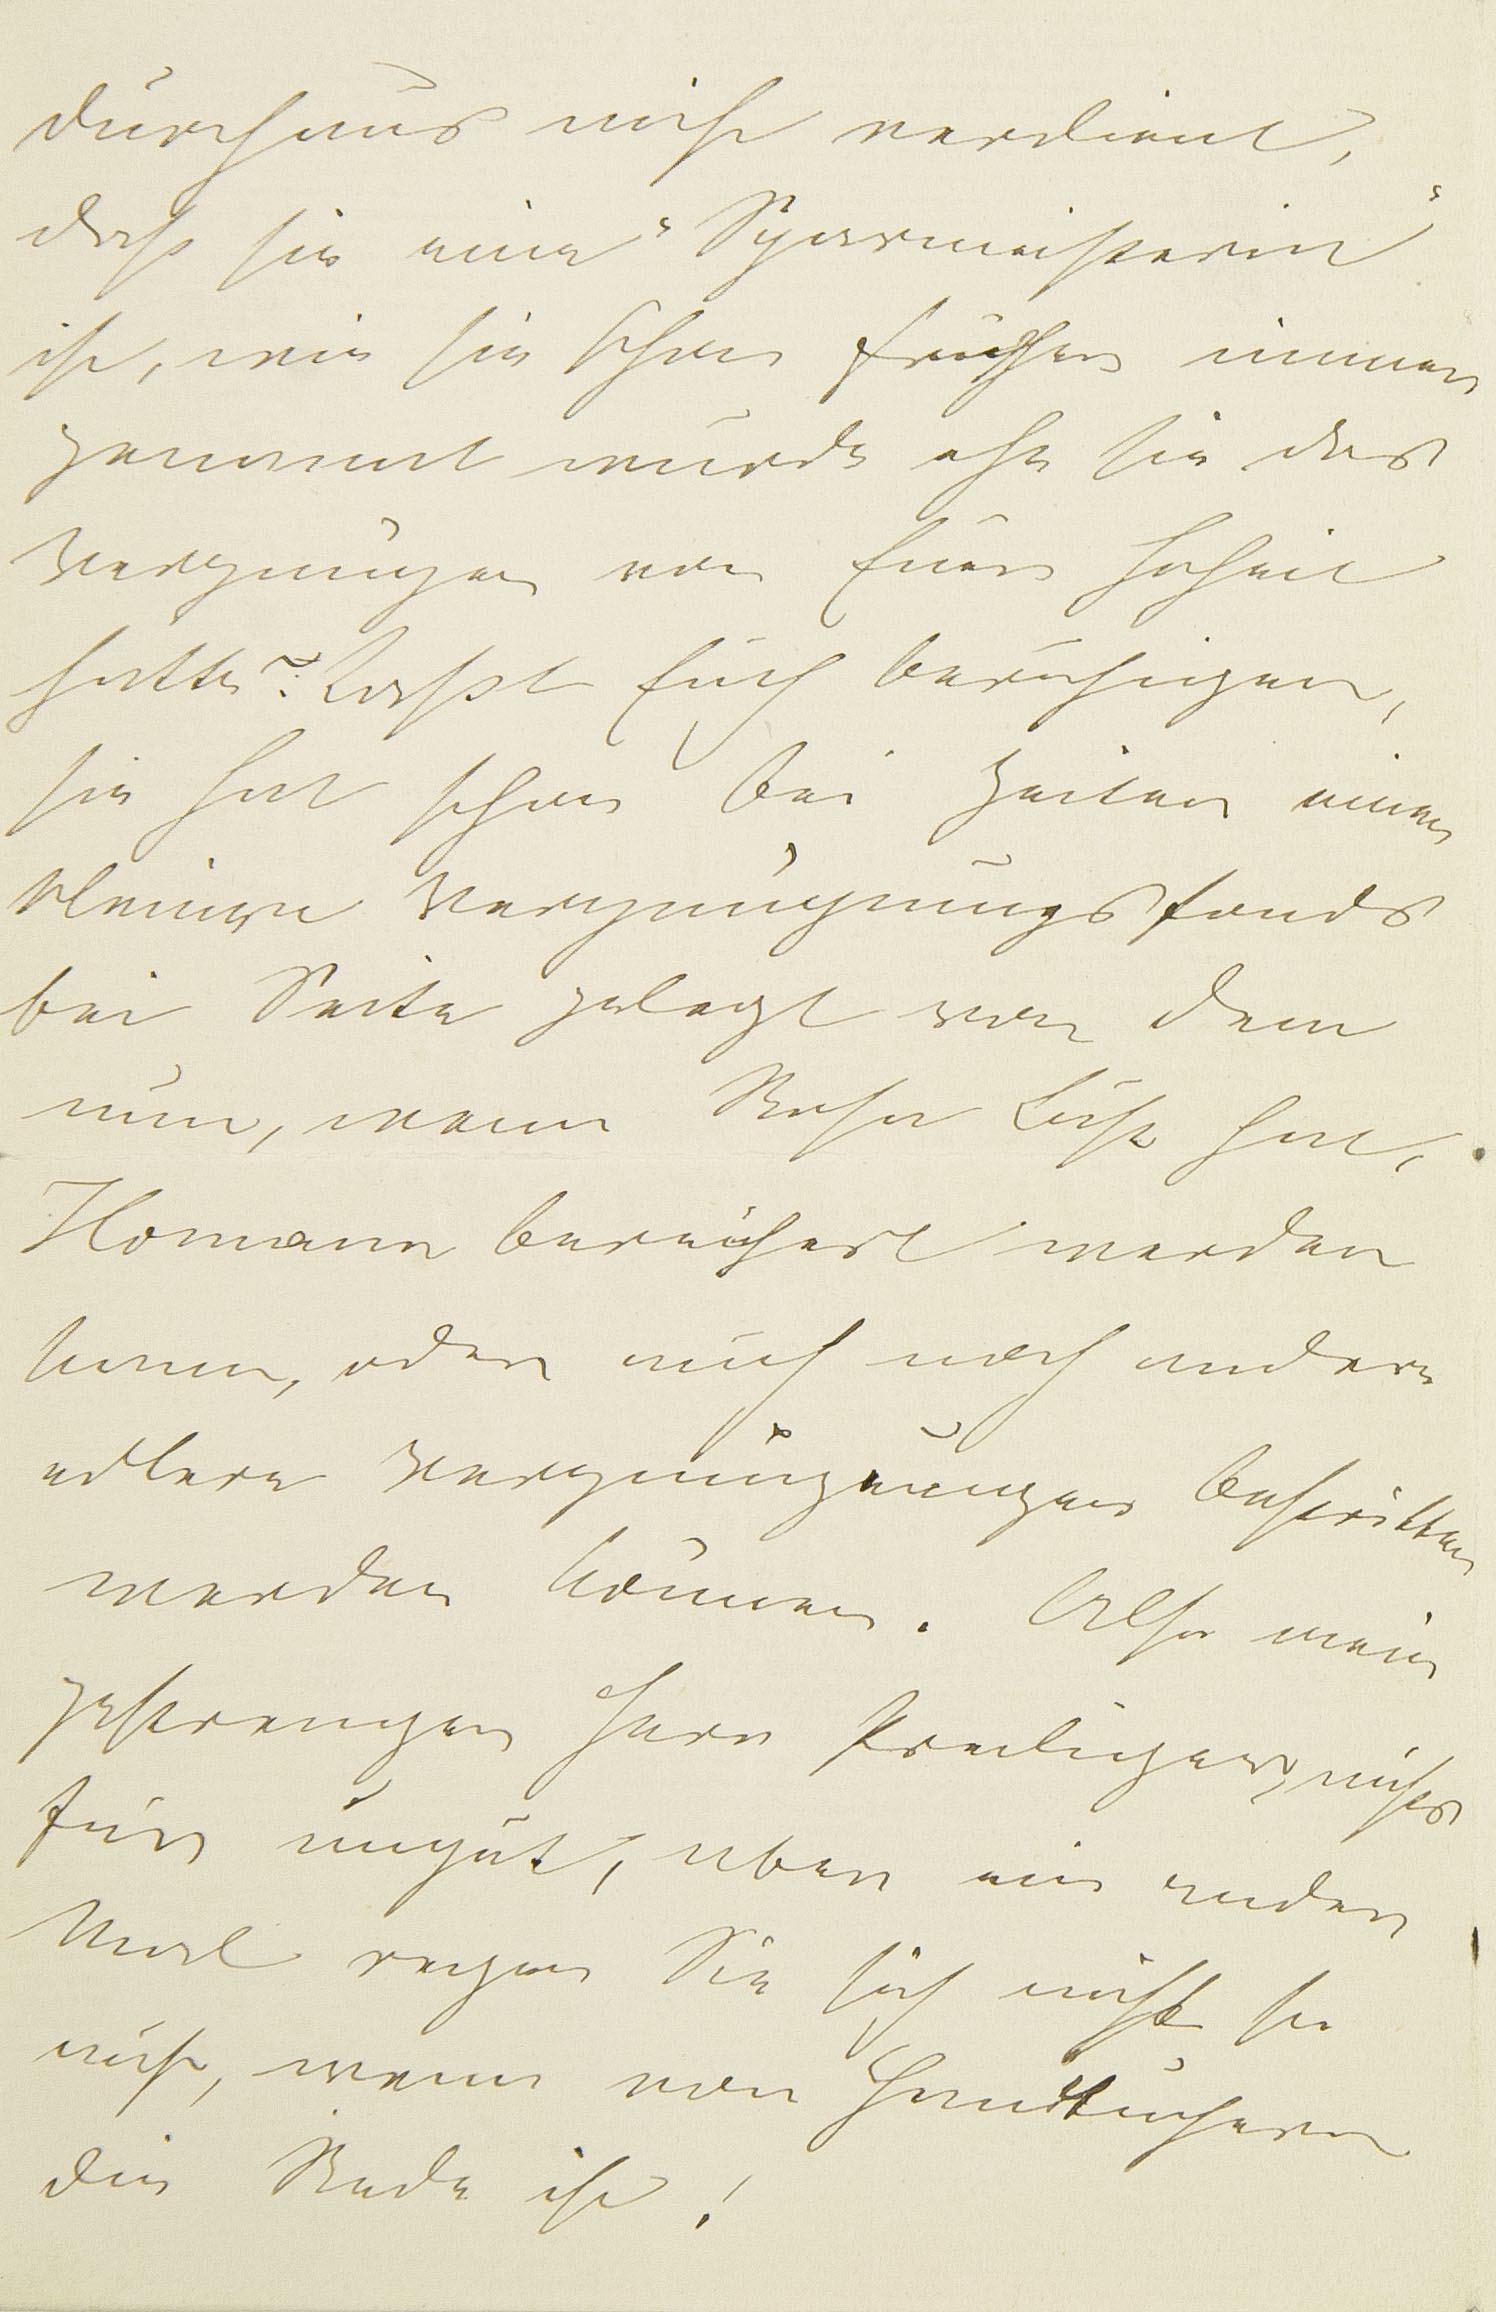 durchaus nicht verdient,
daß sie eine "Sparmeisterin"
ist, wie sie schon früher immer
genannt wurde ehe sie das
Vergnügen von Eurer Hoheit
hatte? Laßt Euch beruhigen,
sie hat schon bei Zeiten einen
kleinen Vergnügungsfonds
bei Seite gelegt von dem
nun, wenn Rosa Lust hat,
Homann bereichert werden
kann, oder auch noch andere
edlere Vergnügungen bestritten
werden können. Also mein
gestrenger Herr Prediger, nichts
für ungut, aber ein ander
Mal regen Sie sich nicht so
auf, wenn von Handtüchern
die Rede ist!